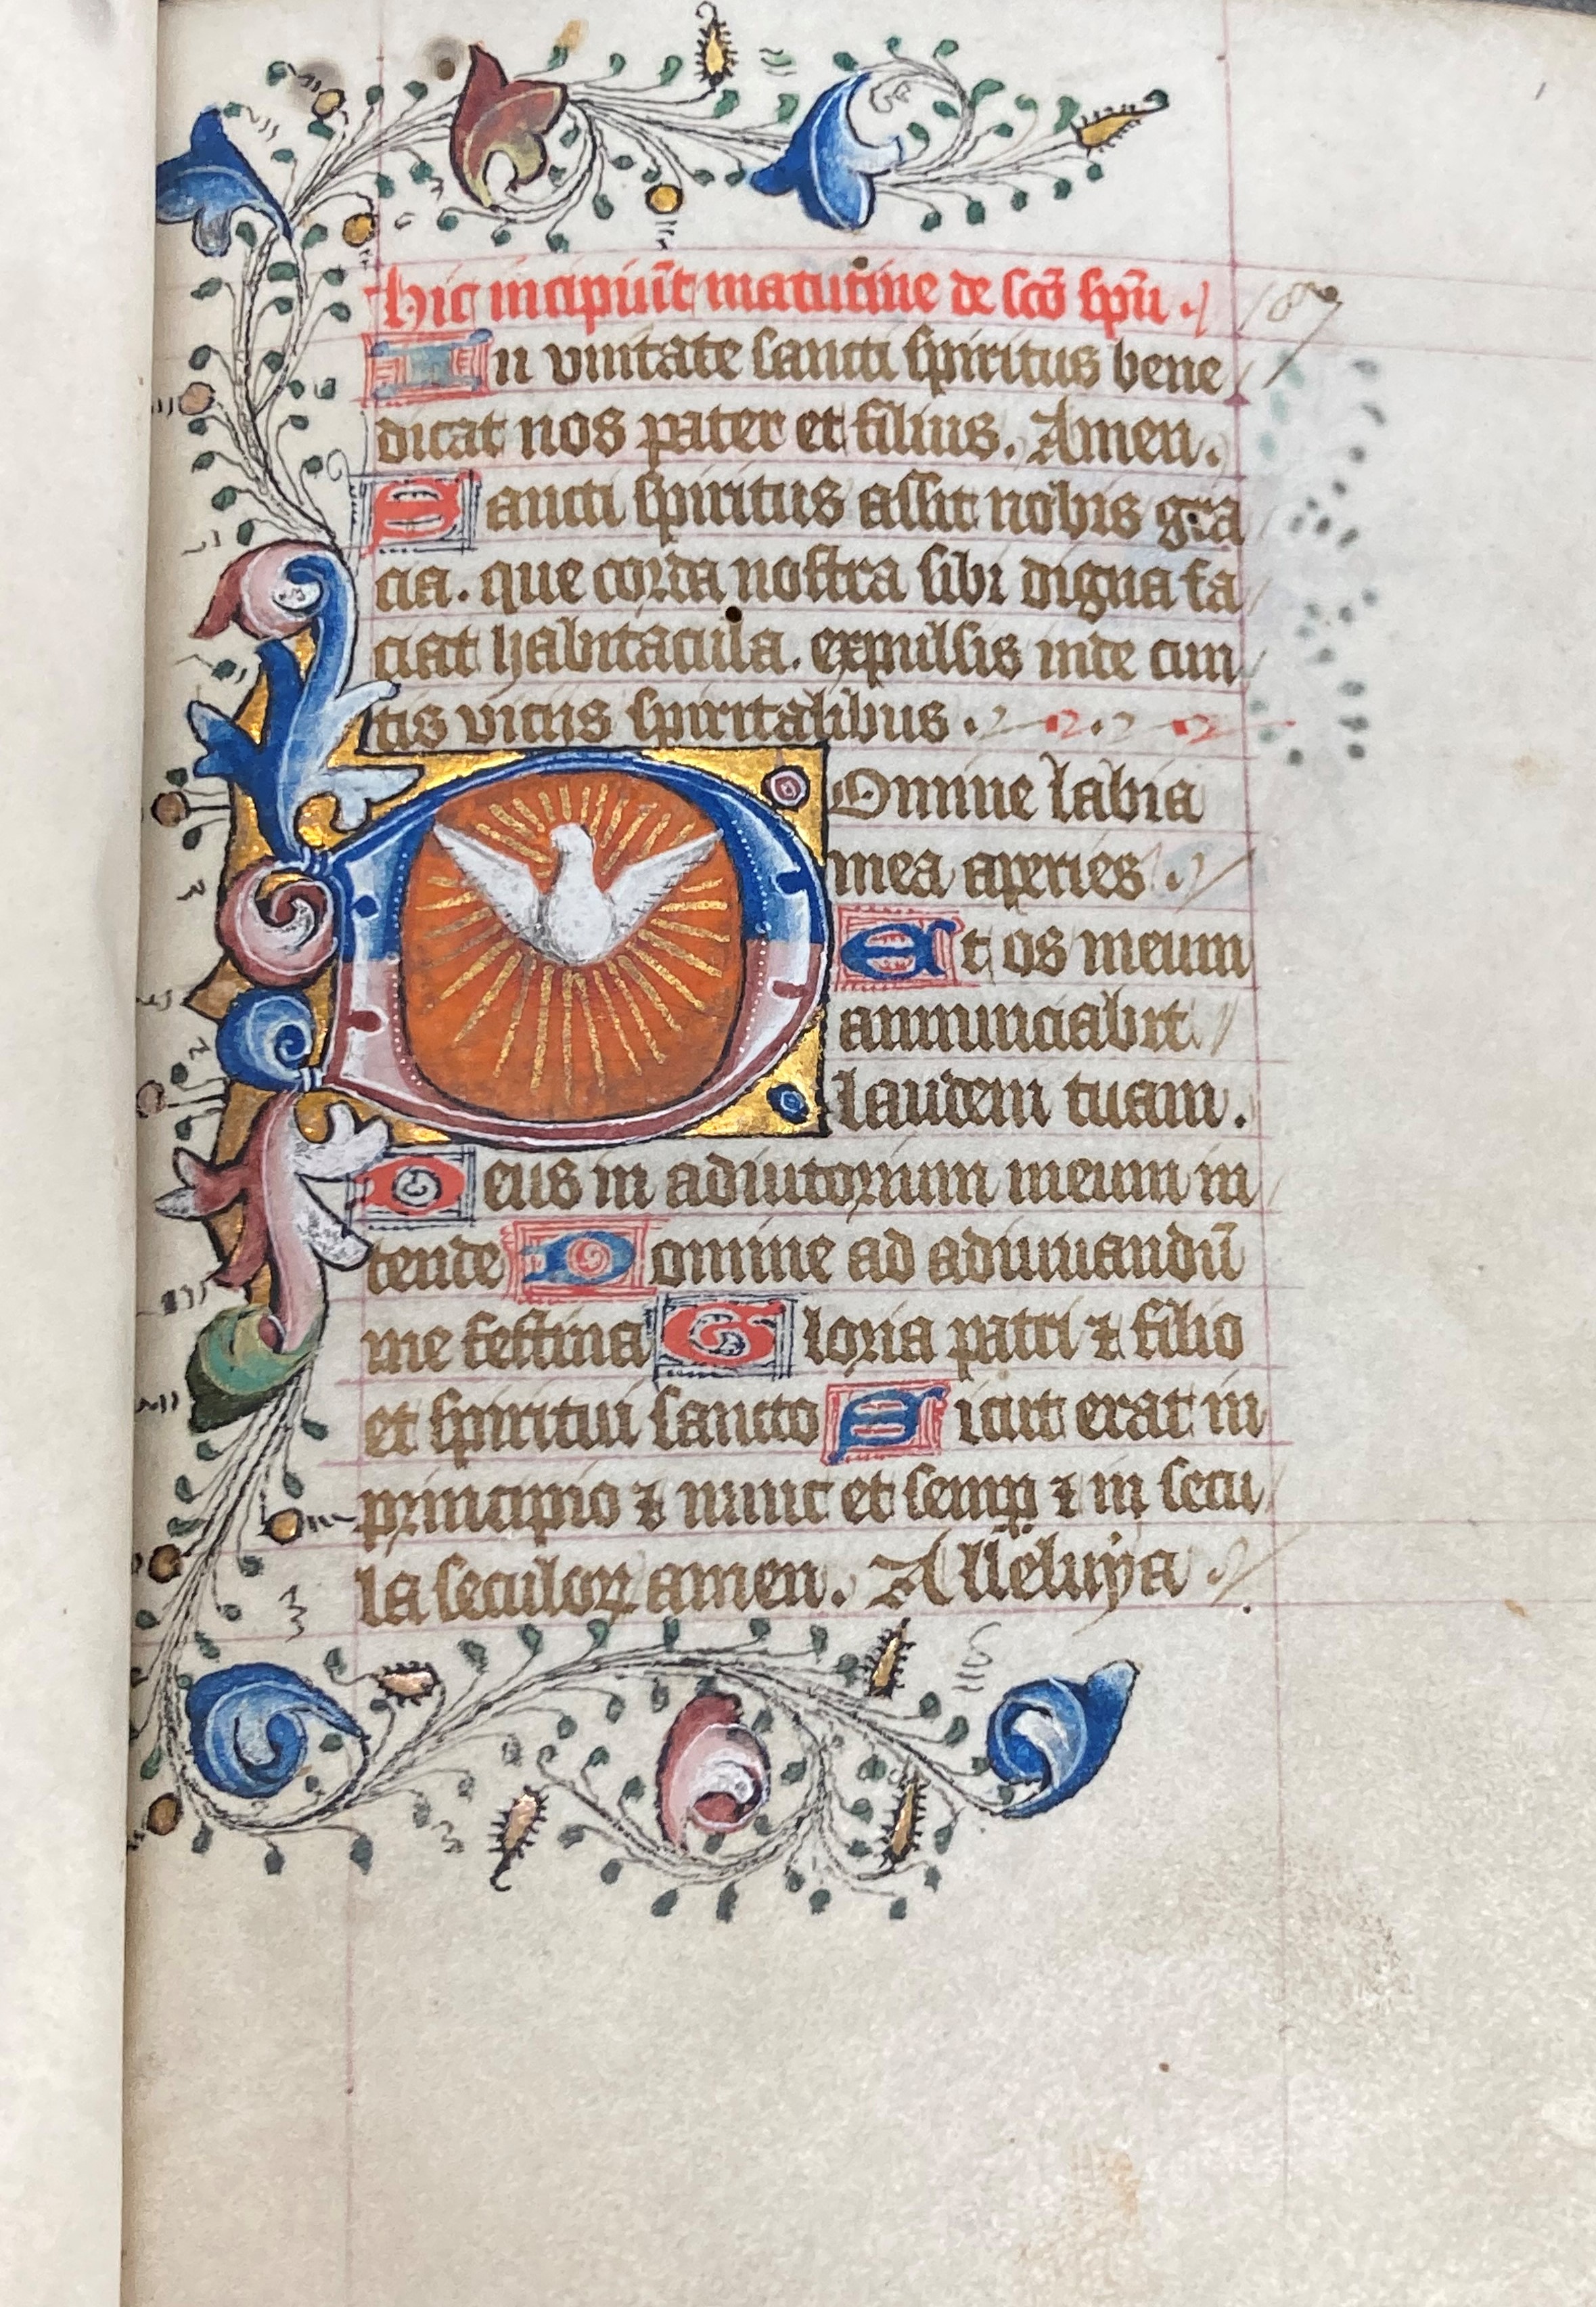 Hic incipiūt matutine de scō spū.
In vnitate sancti spiritus bene
dicat nos pater et filius. Amen.
Sancti spiritus assit nobis gra
cia. que corda nostra sibi digna fa
ciat habitacula. expulsis inde cun
tis viciis spiritalibus.
Domine labia
mea aperies.
Et os meum
annunciabit
laudem tuam.
Deus in adiutorium meum in
tende Domine ad adiuuandū
me festina Gloria patri ⁊ filio
et spiritui sancto Sicut erat in
principio ⁊ nunc et semꝑ ⁊ in secu
la seculoꝝ amen. Alleluya